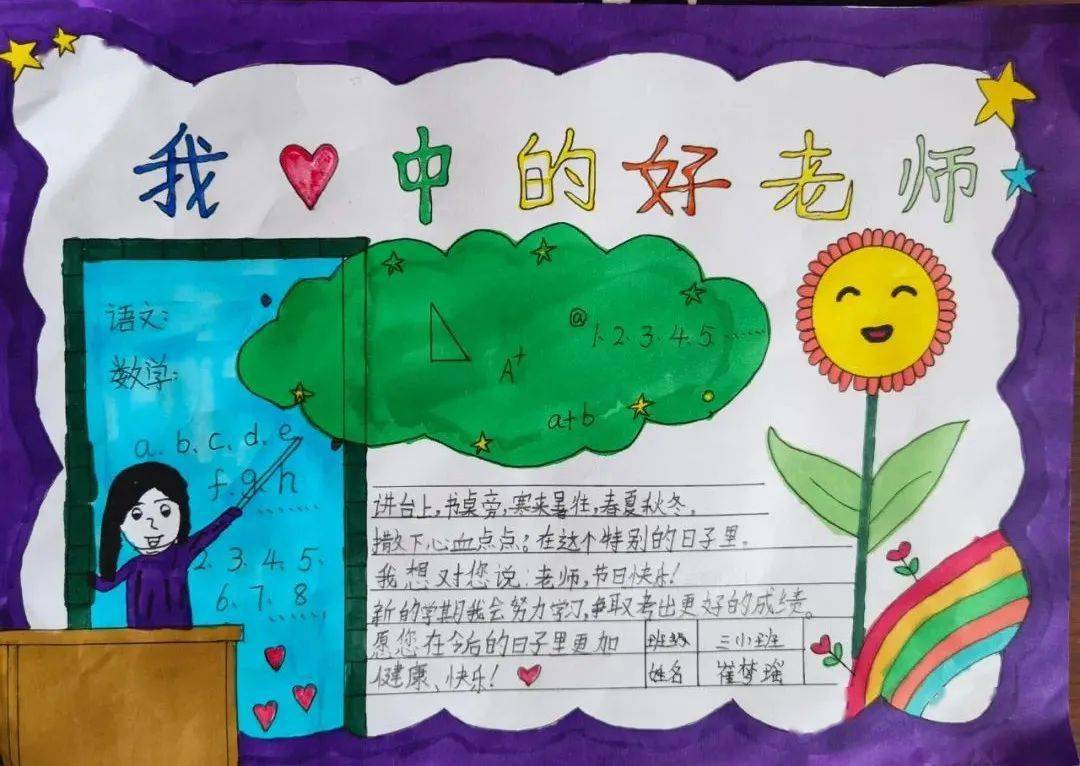 我中的好老师
语文:
数学:
a.b.c.d.e
f.g.h
2.3.4.5.
6.7.8
@
1.2.3.4.5.......
A+
a+b
讲台上,书桌旁,寒来暑往,春夏秋冬,
撒下心血点点;在这个特别的日子里。
我想对您说:老师,节日快乐!
新的学期我会努力学习,争取考出更好的成绩。
愿您在今后的日子里更加
健康、快乐!
班级 三小班
姓名 崔梦瑶